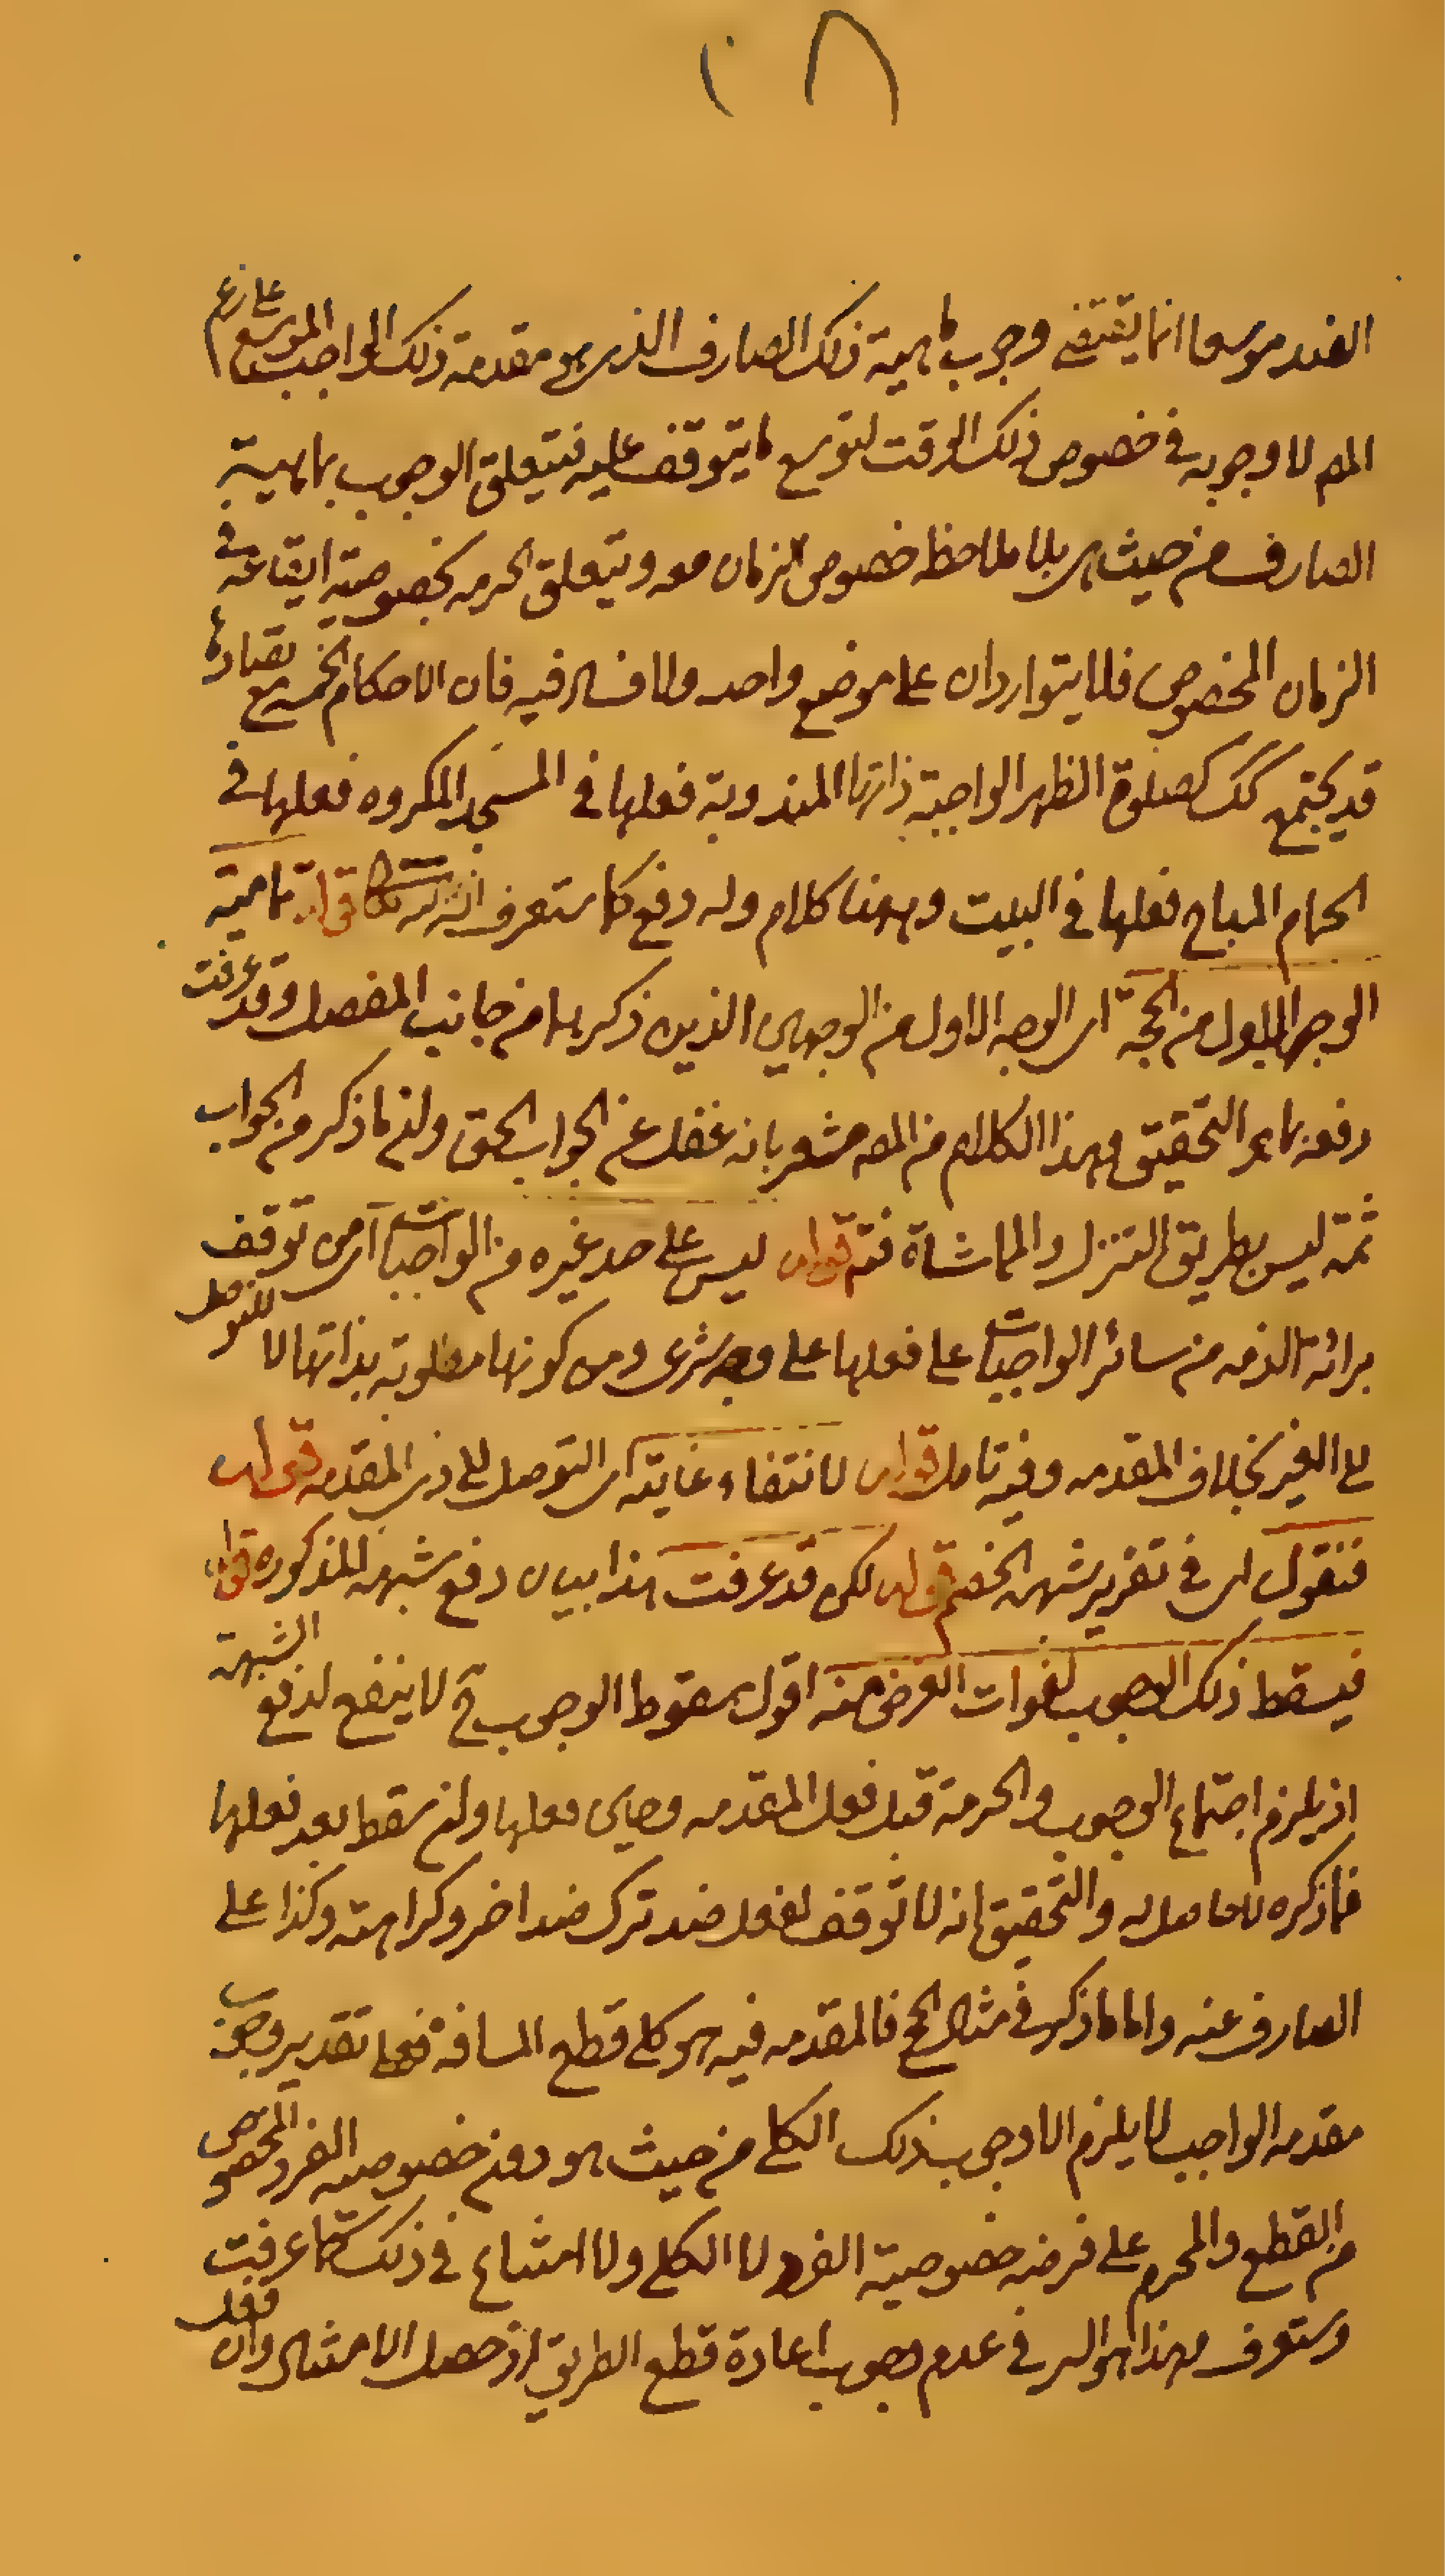 ١٠٨
الضد موسعا انما يقتضى وجوب ماهية ذلك الصارف الذى هى مقدمة ذلك الواجب الموسع على زعم
المص لا وجوبه فى خصوص ذلك الوقت لتوسع ما يتوقف عليه فيتعلق الوجوب بماهية
الصارف من حيث هى بلا ملاحظه خصوص الزمان معه ويتعلق الحرمه بخصوصية ايقاعه فى
الزمان المخصوص فلا يتواردان على موضع واحد ولا فساد فيه فان الاحكام الخمسه مع تضادها
قد يجتمع كك كصلوة الظهر الواجبة ذاتها المندوبة فعلها فى المسجد المكروه فعلها فى
الحمام المباح فعلها فى البيت وههنا كلام وله دفع كما ستعرف انش تعالى قوله بماهية
الوجه الاول من الحجة اى الوجه الاول من الوجهين الذين ذكرهما من جانب المفصل وقد عرفت
دفعه بما هو التحقيق وهذا الكلام من المص مشعر بانه غفل عن الجواب الحق وان ما ذكر من الجواب
ثمة ليس بطريق التنزل والمماشاة فتم قوله ليس على حد غيره من الواجبات اى من توقف
برائة الذمه من سائر الواجبات على فعلها على وجه شرعى ومن كونها مطلوبة بذاتها لا للتوصل
الى الغير بخلاف المقدمه وفيه تامل قوله لانتفاء غايته اى التوصل الى ذى المقدمه قوله
فنقول اى فى تقرير شبهه الخصم قوله لكن قد عرفت هذا بيان دفع شبهه المذكوره قوله
فيسقط ذلك الوجوب لفوات الغرض منه اقول سقوط الوجوب ح لا ينفع لدفع الشبهة
اذ يلزم اجتماع الوجوب والحرمة قبل فعل المقدمه وحين فعلها وان سقط بعد فعلها
فما ذكره لا حاصل له والتحقيق انه لا توقف لفعل ضد ترك ضد اخر وكراهته وكذا على
الصارف عنه واما ما ذكر فى مثال الحج فالمقدمه فيه هو كلى قطع المسافة فعلى تقدير وجوب
مقدمه الواجب لا يلزم الا وجوب ذلك الكلى من حيث هو دون خصوصيه الفرد المخصوص
من القطع والمحرم على فرضه خصوصية الفرد لا الكلى ولا امتناع فى ذلك كما عرفت
وستعرف وهذا هو السر فى عدم وجوب اعادة قطع الطريق اذ حصل الامتثال وان فعل